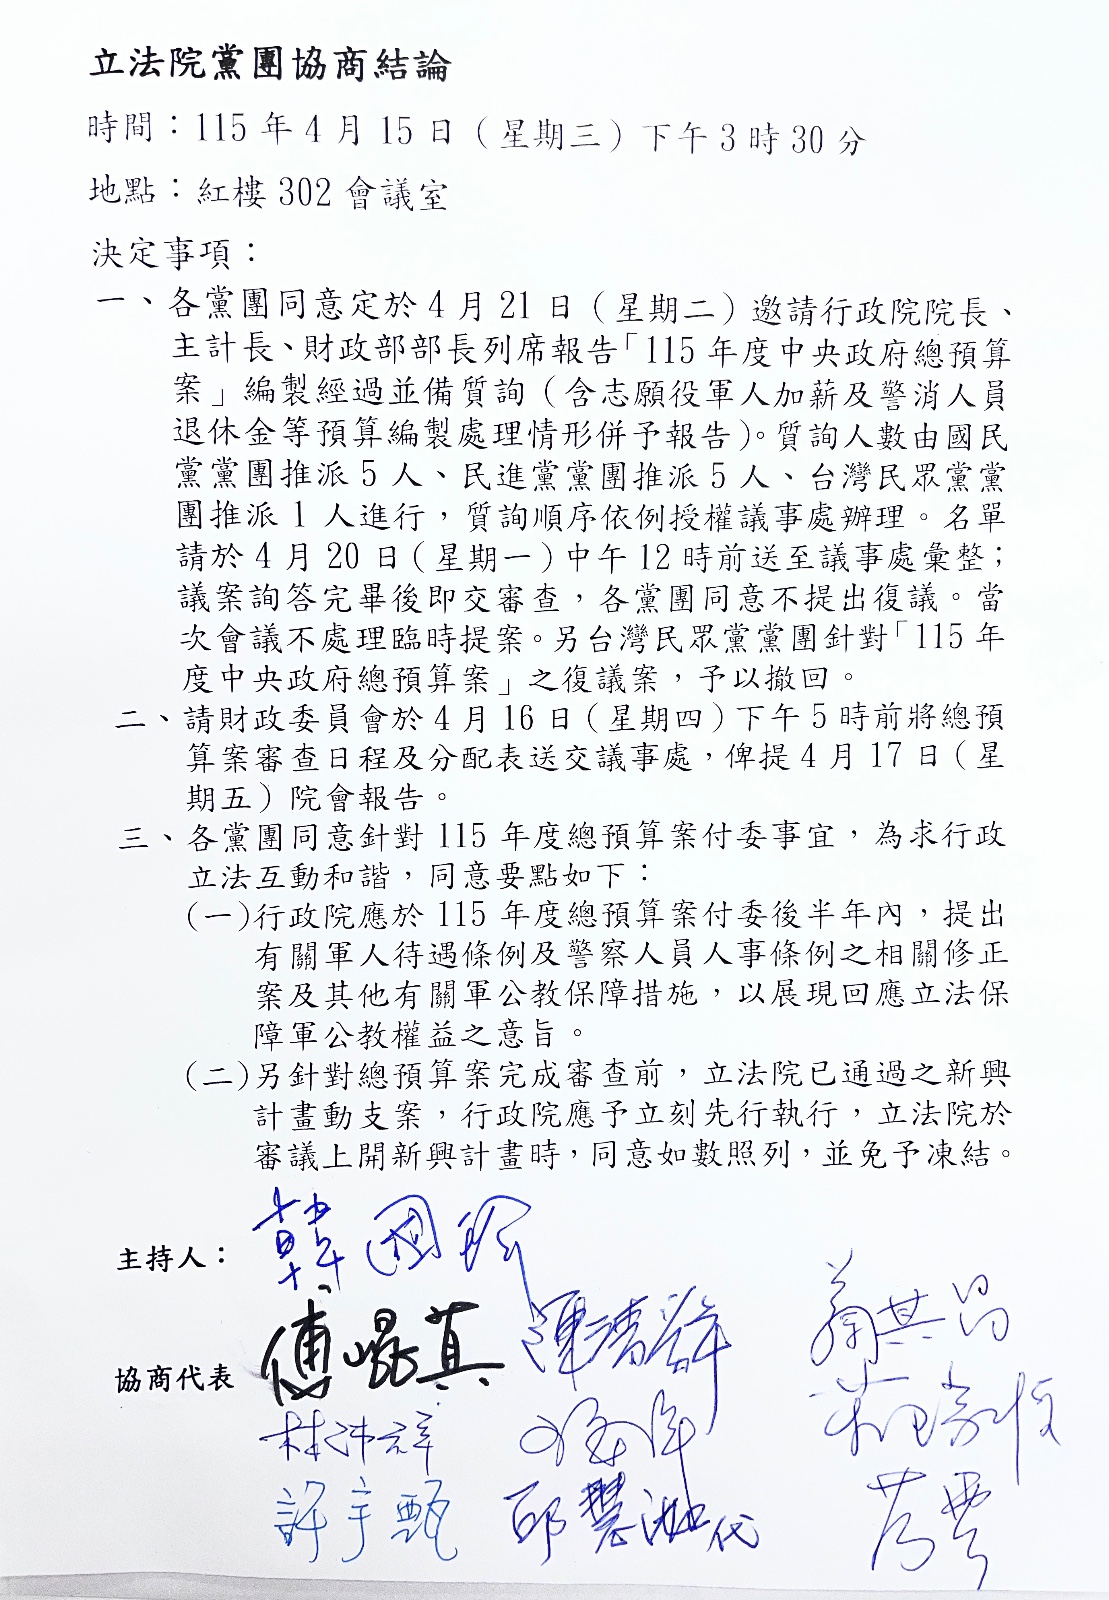 立法院黨團協商結論
時間：115年4月15日（星期三）下午3時30分
地點：紅樓302會議室
決定事項：
一、各黨團同意定於4月21日（星期二）邀請行政院院長、
主計長、財政部部長列席報告「115年度中央政府總預算
案」編製經過並備質詢（含志願役軍人加薪及警消人員
退休金等預算編製處理情形併予報告）。質詢人數由國民
黨黨團推派5人、民進黨黨團推派5人、台灣民眾黨黨
團推派1人進行，質詢順序依例授權議事處辦理。名單
請於4月20日（星期一）中午12時前送至議事處彙整；
議案詢答完畢後即交審查，各黨團同意不提出復議。當
次會議不處理臨時提案。另台灣民眾黨黨團針對「115年
度中央政府總預算案」之復議案，予以撤回。
二、請財政委員會於4月16日（星期四）下午5時前將總預
算案審查日程及分配表送交議事處，俾提4月17日（星
期五）院會報告。
三、各黨團同意針對115年度總預算案付委事宜，為求行政
立法互動和諧，同意要點如下：
(一)行政院應於115年度總預算案付委後半年內，提出
有關軍人待遇條例及警察人員人事條例之相關修正
案及其他有關軍公教保障措施，以展現回應立法保
障軍公教權益之意旨。
(二)另針對總預算案完成審查前，立法院已通過之新興
計畫動支案，行政院應予立刻先行執行，立法院於
審議上開新興計畫時，同意如數照列，並免予凍結。
主持人：韓國瑜
協商代表 傅崐萁
林沛祥
許宇甄 邱慧洳代